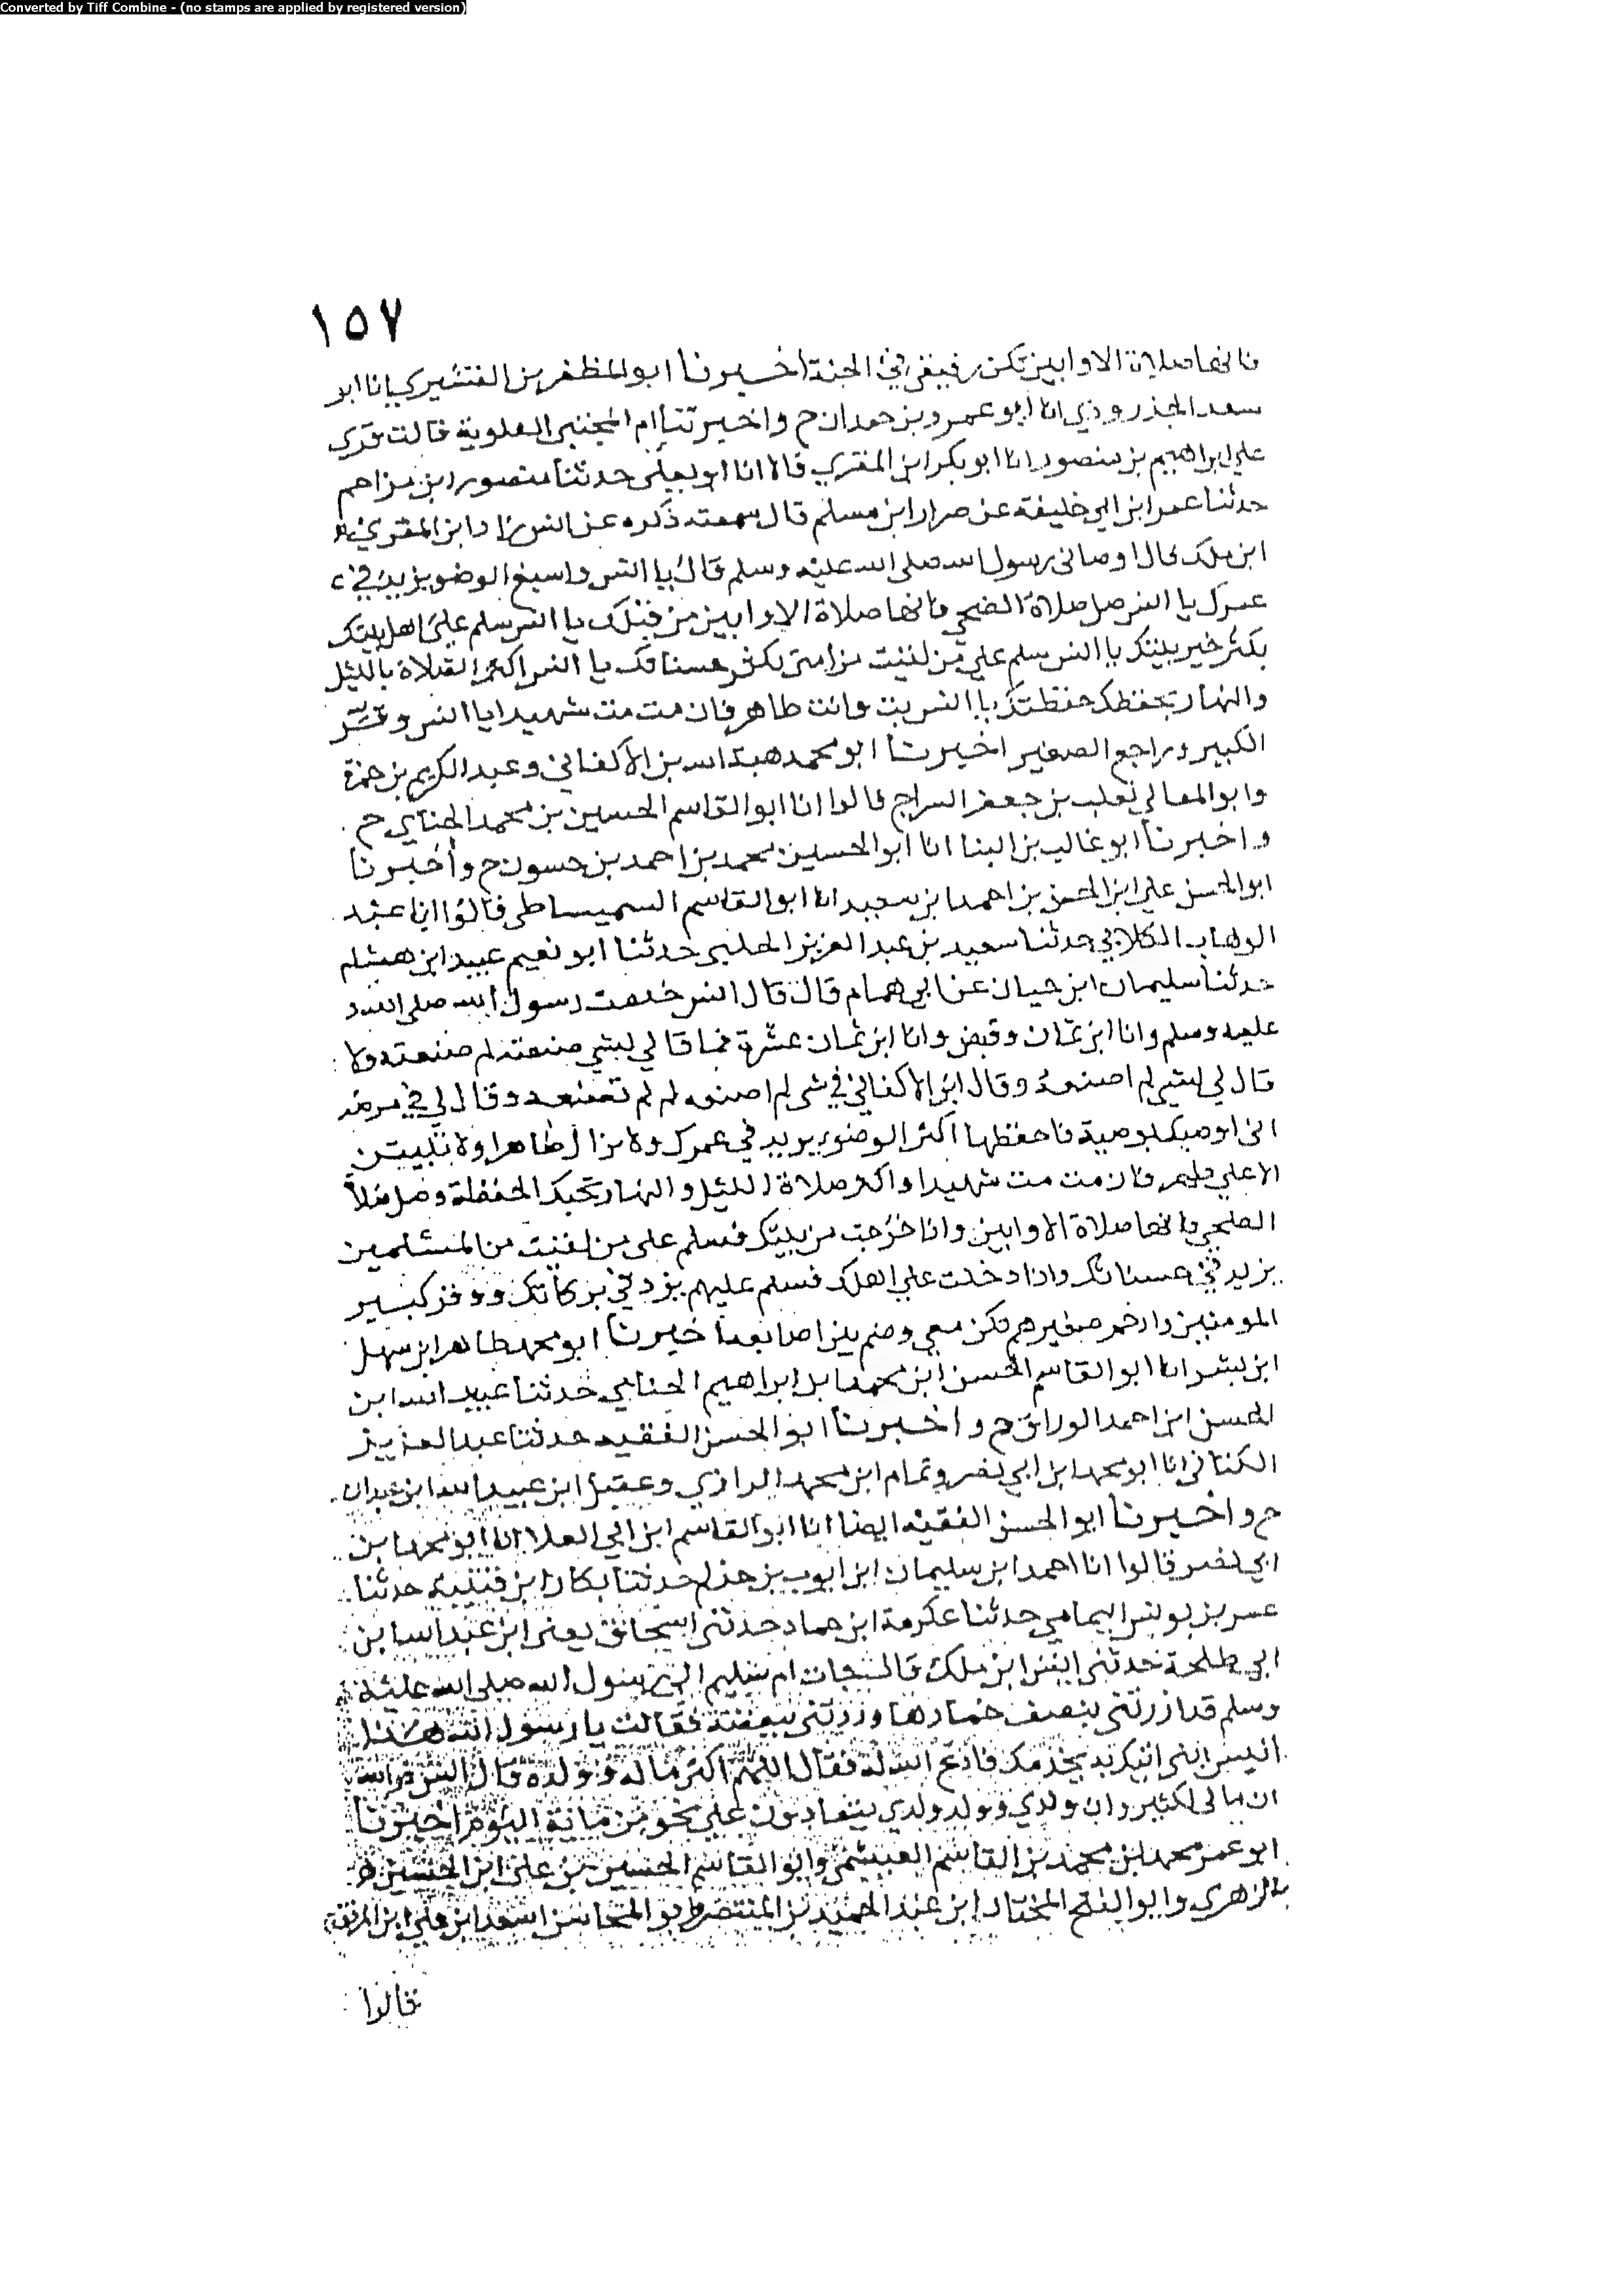 Converted by Tiff Combine - (no stamps are applied by registered version)
١٥٧
فانها صلاة الاوابين تكن رفيقي في الجنة اخبرنا ابو المظفر بن القشيري انا ابو
سعد الجنزروذي انا ابو عمرو بن حمدان ح واخبرتنا ام المجتبى العلوية قالت قرى
على ابراهيم بن منصور انا ابو بكر ابن المقري قالا انا ابو يعلى حدثنا منصور ابن مزاحم
حدثنا عمر ابن ابي خليفة عن ضرار ابن مسلم قال سمعته ذكره عن انس زاد ابن المقري
ابن ملك قال اوصاني رسول الله صلى الله عليه وسلم قال يا انس واسبغ الوضو يزيد في
عمرك يا انس صل صلاة الضحى فانها صلاة الاوابين من قبلك يا انس سلم على اهل بيتك
يكثر خير بيتك يا انس سلم على من لقيت من امتي يكثر حسناتك يا انس اكثر الصلاة بالليل
والنهار تحفظك حفظتك يا انس بت وانت طاهر فان مت مت شهيدا يا انس وقر
الكبير وراجع الصغير اخبرنا ابو محمد هبة الله بن الاكفاني وعبد الكريم بن حمزة
وابو المعالي ثعلب بن جعفر السراج قالوا انا ابو القاسم الحسين بن محمد الحناي ح
واخبرنا ابو غالب بن البنا انا ابو الحسين محمد بن احمد بن حسون ح واخبرنا
ابو الحسن علي ابن الحسن بن احمد ابن سعيد انا ابو القاسم السميساطي قالوا انا عبد
الوهاب الكلابي حدثنا سعيد بن عبد العزيز الحلبي حدثنا ابو نعيم عبيد ابن هشام
حدثنا سليمان ابن حيان عن ابي همام قال قال انس خدمت رسول الله صلى الله
عليه وسلم وانا ابن ثمان وقبض وانا ابن ثمان عشرة فما قال لي لشي صنعته لم صنعته ولا
قال لي لشي لم اصنعه وقال ابن الاكفاني في شي لم اصنعه لم لم تصنعه وقال لي في مرضه
اني اوصيك بوصية فاحفظها اكثر الوضو يزيد في عمرك ولا تزال طاهرا ولا تبيتن
الا على طهر فان مت مت شهيدا واكثر صلاة الليل والنهار تحبك الحفظة وصل صلاة
الضحى فانها صلاة الاوابين واذا خرجت من بيتك فسلم على من لقيت من المسلمين
يزيد في حسناتك واذا دخلت على اهلك فسلم عليهم يزد في بركاتك ووقر كبير
المومنين وارحم صغيرهم تكن معي وضم بين اصابعه اخبرنا ابو محمد طاهر ابن سهل
ابن بشر انا ابو القاسم الحسن ابن محمد ابن ابراهيم الحنايي حدثنا عبيد الله ابن
الحسن ابن احمد الوراق ح واخبرنا ابو الحسن الفقيه حدثنا عبد العزيز
الكتاني انا ابو محمد ابن ابي نصر وتمام ابن محمد الرازي وعقيل ابن عبيد الله ابن عبدان
ح واخبرنا ابو الحسن الفقيه ايضا انا ابو القاسم ابن ابي العلا انا ابو محمد ابن
ابي نصر قالوا انا احمد ابن سليمان ابن ايوب بن حذلم حدثنا بكار ابن قتيبة حدثنا
عمر بن يونس اليمامي حدثنا عكرمة ابن عمار حدثني اسحاق يعني ابن عبد الله ابن
ابي طلحة حدثني انس ابن ملك قال جات ام سليم الى رسول الله صلى الله عليه
وسلم قد ازرتني بنصف خمارها وردتني ببعضه فقالت يا رسول الله هذا
انيس ابني اتيتك به يخدمك فادع الله له فقال اللهم اكثر ماله وولده قال انس فوالله
ان مالي لكثير وان ولدي وولد ولدي يتعادون على نحو من ماية اليوم اخبرنا
ابو عمر محمد ابن محمد بن القاسم العبشمي وابو القاسم الحسين بن علي ابن الحسين
الزهري وابو الفتح المختار ابن عبد الحميد بن المنتصر وابو المحاسن اسعد ابن علي ابن الموفق
قالوا